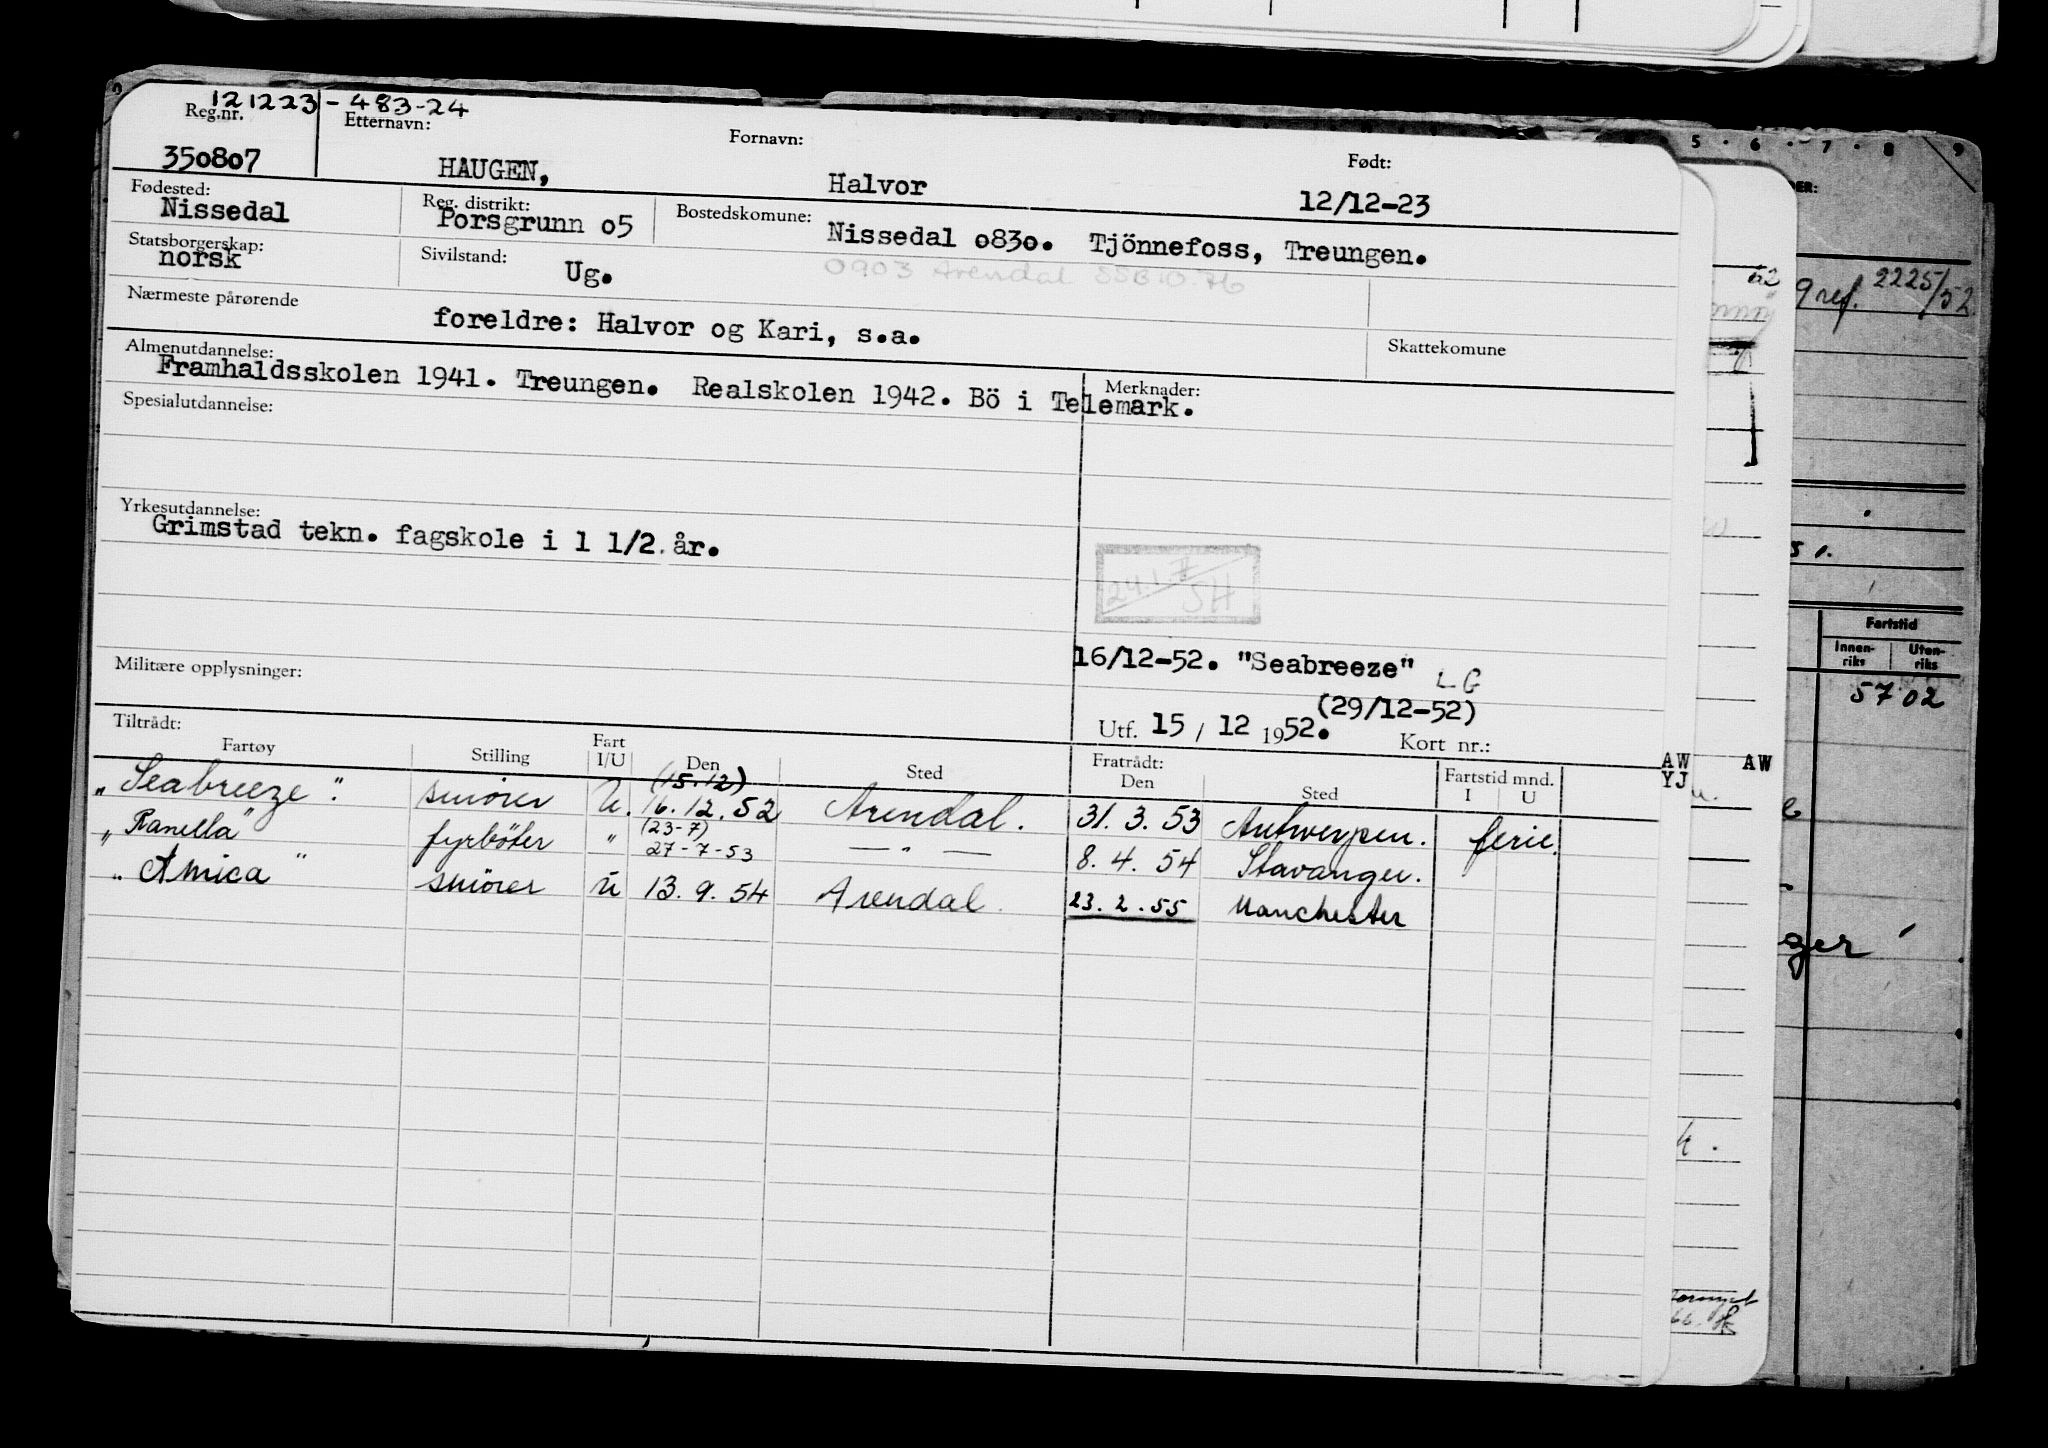 121223-483-24
Reg.nr. Etternavn: Fornavn: Født:
350807 HAUGEN, Halvor 12/12-23
Fødested: Reg. distrikt: Bostedskomune:
Nissedal Porsgrunn o5 Nissedal o83o. Tjönnefoss, Treungen.
Statsborgerskap: Sivilstand:
norsk Ug. 0903 Arendal SSB 10.76
Nærmeste pårørende
foreldre: Halvor og Kari, s.a.
Skattekomune
Almenutdannelse: Merknader:
Framhaldsskolen 1941. Treungen. Realskolen 1942. Bö i Telemark.
Spesialutdannelse:
Yrkesutdannelse:
Grimstad tekn. fagskole i 1 1/2 år.
Militære opplysninger:
16/12-52. "Seabreeze" LG
(29/12-52)
Utf. 15 / 12 1952. Kort nr.:
Tiltrådt: Fratrådt:
Fartøy Stilling Fart I/U Den Sted Den Sted Fartstid mnd. I U
(15.12)
"Seabreeze". smörer U. 16.12.52 Arendal. 31.3.53 Antwerpen. ferie.
(23-7)
"Ranella" fyrböter " 27-7-53 — " — 8.4.54 Stavanger.
"Amica" smörer U 13.9.54 Arendal. 23.2.55 Manchester
AW AW
YJ
5 . 6 . 7 . 8 . 9
ref. 2225/52
Fartstid
Innen-riks Uten-riks
5702